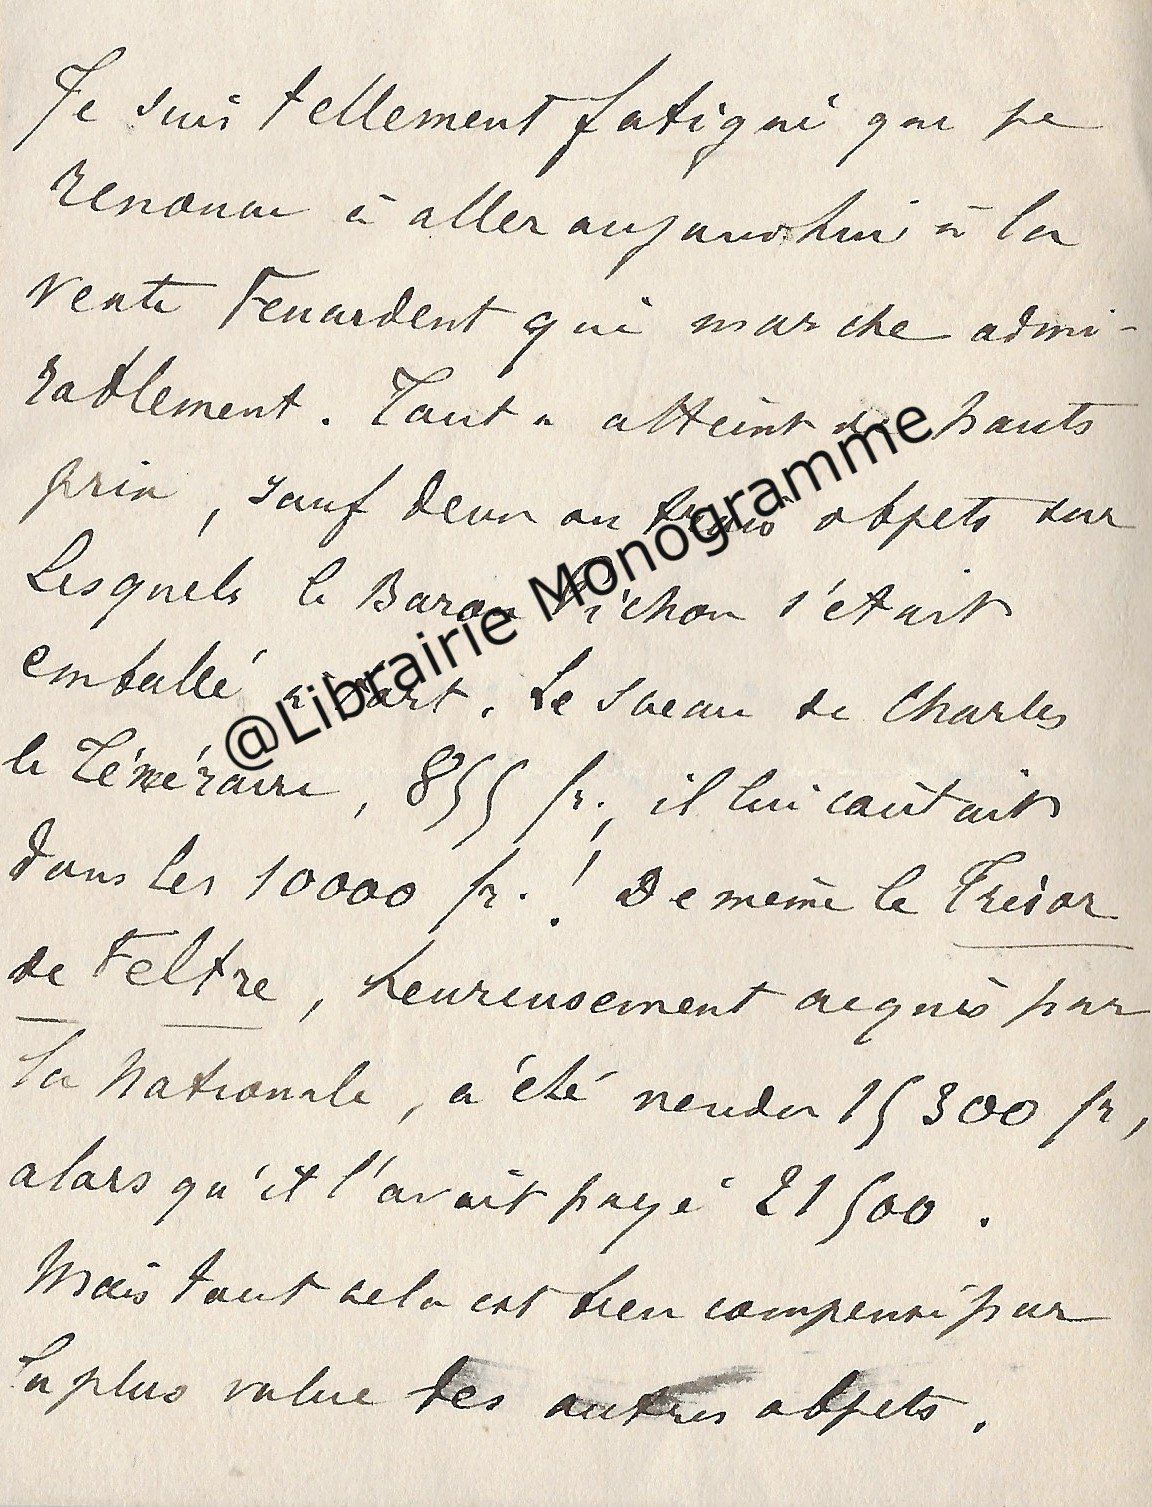 Je suis tellement fatigué que je
renonce à aller aujourd'hui à la
vente Feuardent qui marche admi-
rablement. Tout a atteint de hauts
prix, sauf deux ou trois objets sur
lesquels le Baron Pichon s'était
emballé à tort. Le sceau de Charles
le Téméraire, 855 fr., il lui coûtait
dans les 10000 fr.! De même le Trésor
de Feltre, heureusement acquis par
la Nationale, a été vendu 15300 fr,
alors qu'il l'avait payé 21500.
Mais tout cela est bien compensé par
la plus value des autres objets.
@Librairie Monogramme